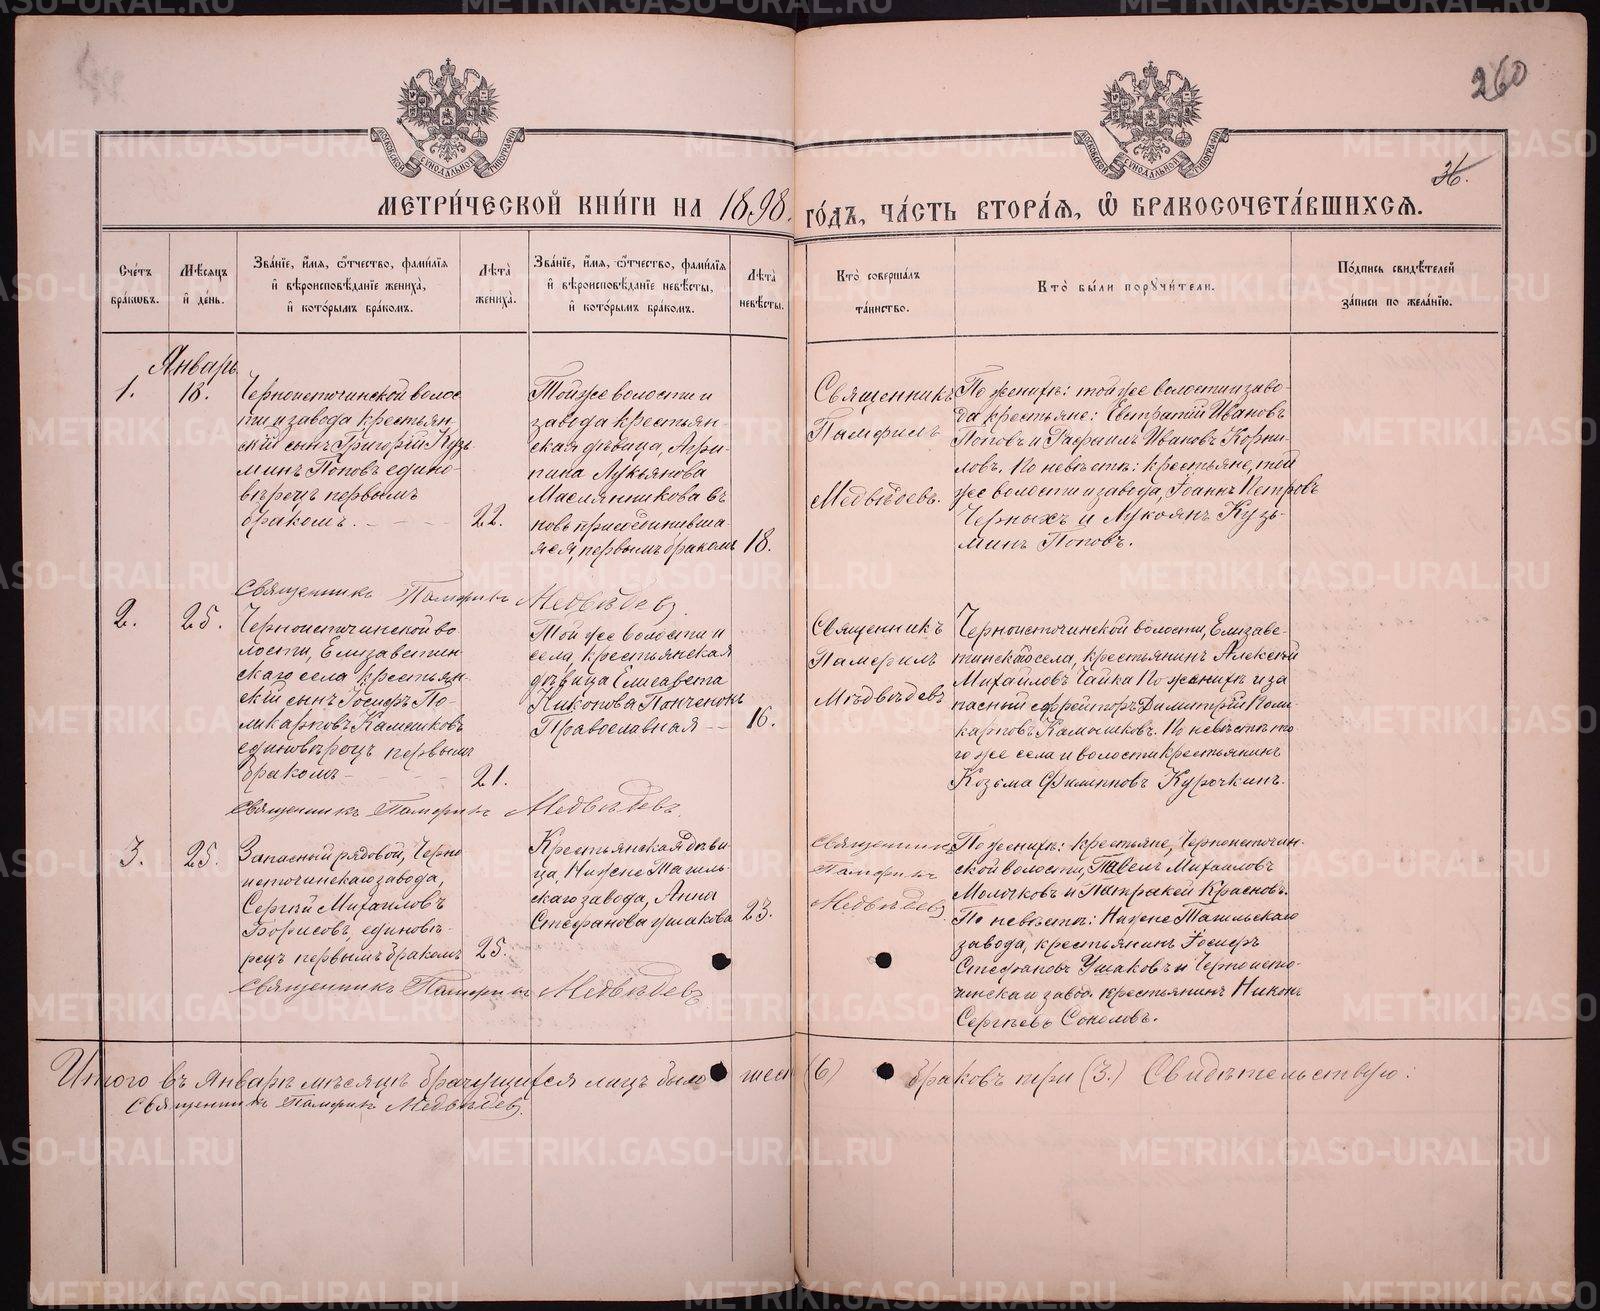 260
36.
МЕТРИ́ЧЕСКОЙ КНИ́ГИ НА 1898 ГО́ДЪ, ЧА́СТЬ ВТОРА́Я, Ѡ БРАКОСОЧЕТА́ВШИХСЯ.
Сче́тъ
бра́кѡвъ.
Мѣ́сяцъ
и҆ де́нь.
Зва́нїе, и҆́мя, ѻ҆́тчество, фами́лїя
и҆ вѣроисповѣ́данїе жениха̀,
и҆ кото́рымъ бра́комъ.
Лѣта̀
жениха̀.
Зва́нїе, и҆́мя, ѻ҆́тчество, фами́лїя
и҆ вѣроисповѣ́данїе невѣ́сты,
и҆ кото́рымъ бра́комъ.
Лѣта̀
невѣ́сты.
Кто̀ соверша́лъ
та́инство.
Кто̀ бы́ли поручи́тели.
По́дпись свидѣ́телей
за́писи по жела́нїю.
Январь
1.
18.
Черноисточинской волос
ти и завода крестьян
скій сынъ Григорій Кузь
минъ Поповъ едино-
вѣрецъ первымъ
бракомъ.
22.
Той же волости и
завода крестьян-
ская дѣвица, Агри-
пина Лукьянова
Маслянникова въ
новь присоединивша-
яся, первымъ бракомъ
18.
Священникъ
Памфилъ
Медвѣдевъ.
По женихѣ: той же волости и заво-
да крестьяне: Евстратій Ивановъ
Поповъ и Рафаилъ Ивановъ Корни-
ловъ. По невѣстѣ: крестьяне, той
же волости и завода, Іоаннъ Петровъ
Черныхъ и Лукоянъ Кузь-
минъ Поповъ.
Священникъ Памфилъ Медвѣдевъ.
2.
25.
Черноисточинской во
лости, Елизаветин-
скаго села крестьян-
скій сынъ Іосифъ По-
ликарповъ Камешковъ
единовѣрецъ первымъ
бракомъ
21.
Той же волости и
села, крестьянская
дѣвица Елисавета
Никонова Панченокъ
Православная
16.
Священникъ
Памфилъ
Медвѣдевъ
Черноисточинской волости, Елизаве-
тинскаго села, крестьянинъ Алексѣй
Михайловъ Чайка По женихѣ и за
пасный ефрейторъ Димитрій Поли
карповъ Камешковъ. По невѣстѣ то
го же села и волости крестьянинъ
Козьма Филипповъ Курочкинъ.
Священникъ Памфилъ Медвѣдевъ.
3.
25.
Запасный рядовой, Черно
источинскаго завода,
Сергѣй Михаиловъ
Борисовъ, единовѣ-
рецъ первымъ бракомъ
25.
Крестьянская дѣви
ца, Нижне Тагиль-
скаго завода, Анна
Стефанова Ушакова
23.
Священникъ
Памфилъ
Медвѣдевъ
По женихѣ: крестьяне, Черноисточин-
ской волости, Павелъ Михаиловъ
Молочковъ и Патракей Красновъ.
По невѣстѣ: Нижне Тагильскаго
завода, крестьянинъ Іосифъ
Стефановъ Ушаковъ и Черноисто-
чинскаго завода крестьянинъ Никонъ
Сергѣевъ Соколовъ.
Священникъ Памфилъ Медвѣдевъ
Итого въ Январѣ мѣсяцѣ брачущихся лицъ было шесть (6) браковъ три (3.) Свидѣтельствую:
Священникъ Памфилъ Медвѣдевъ.